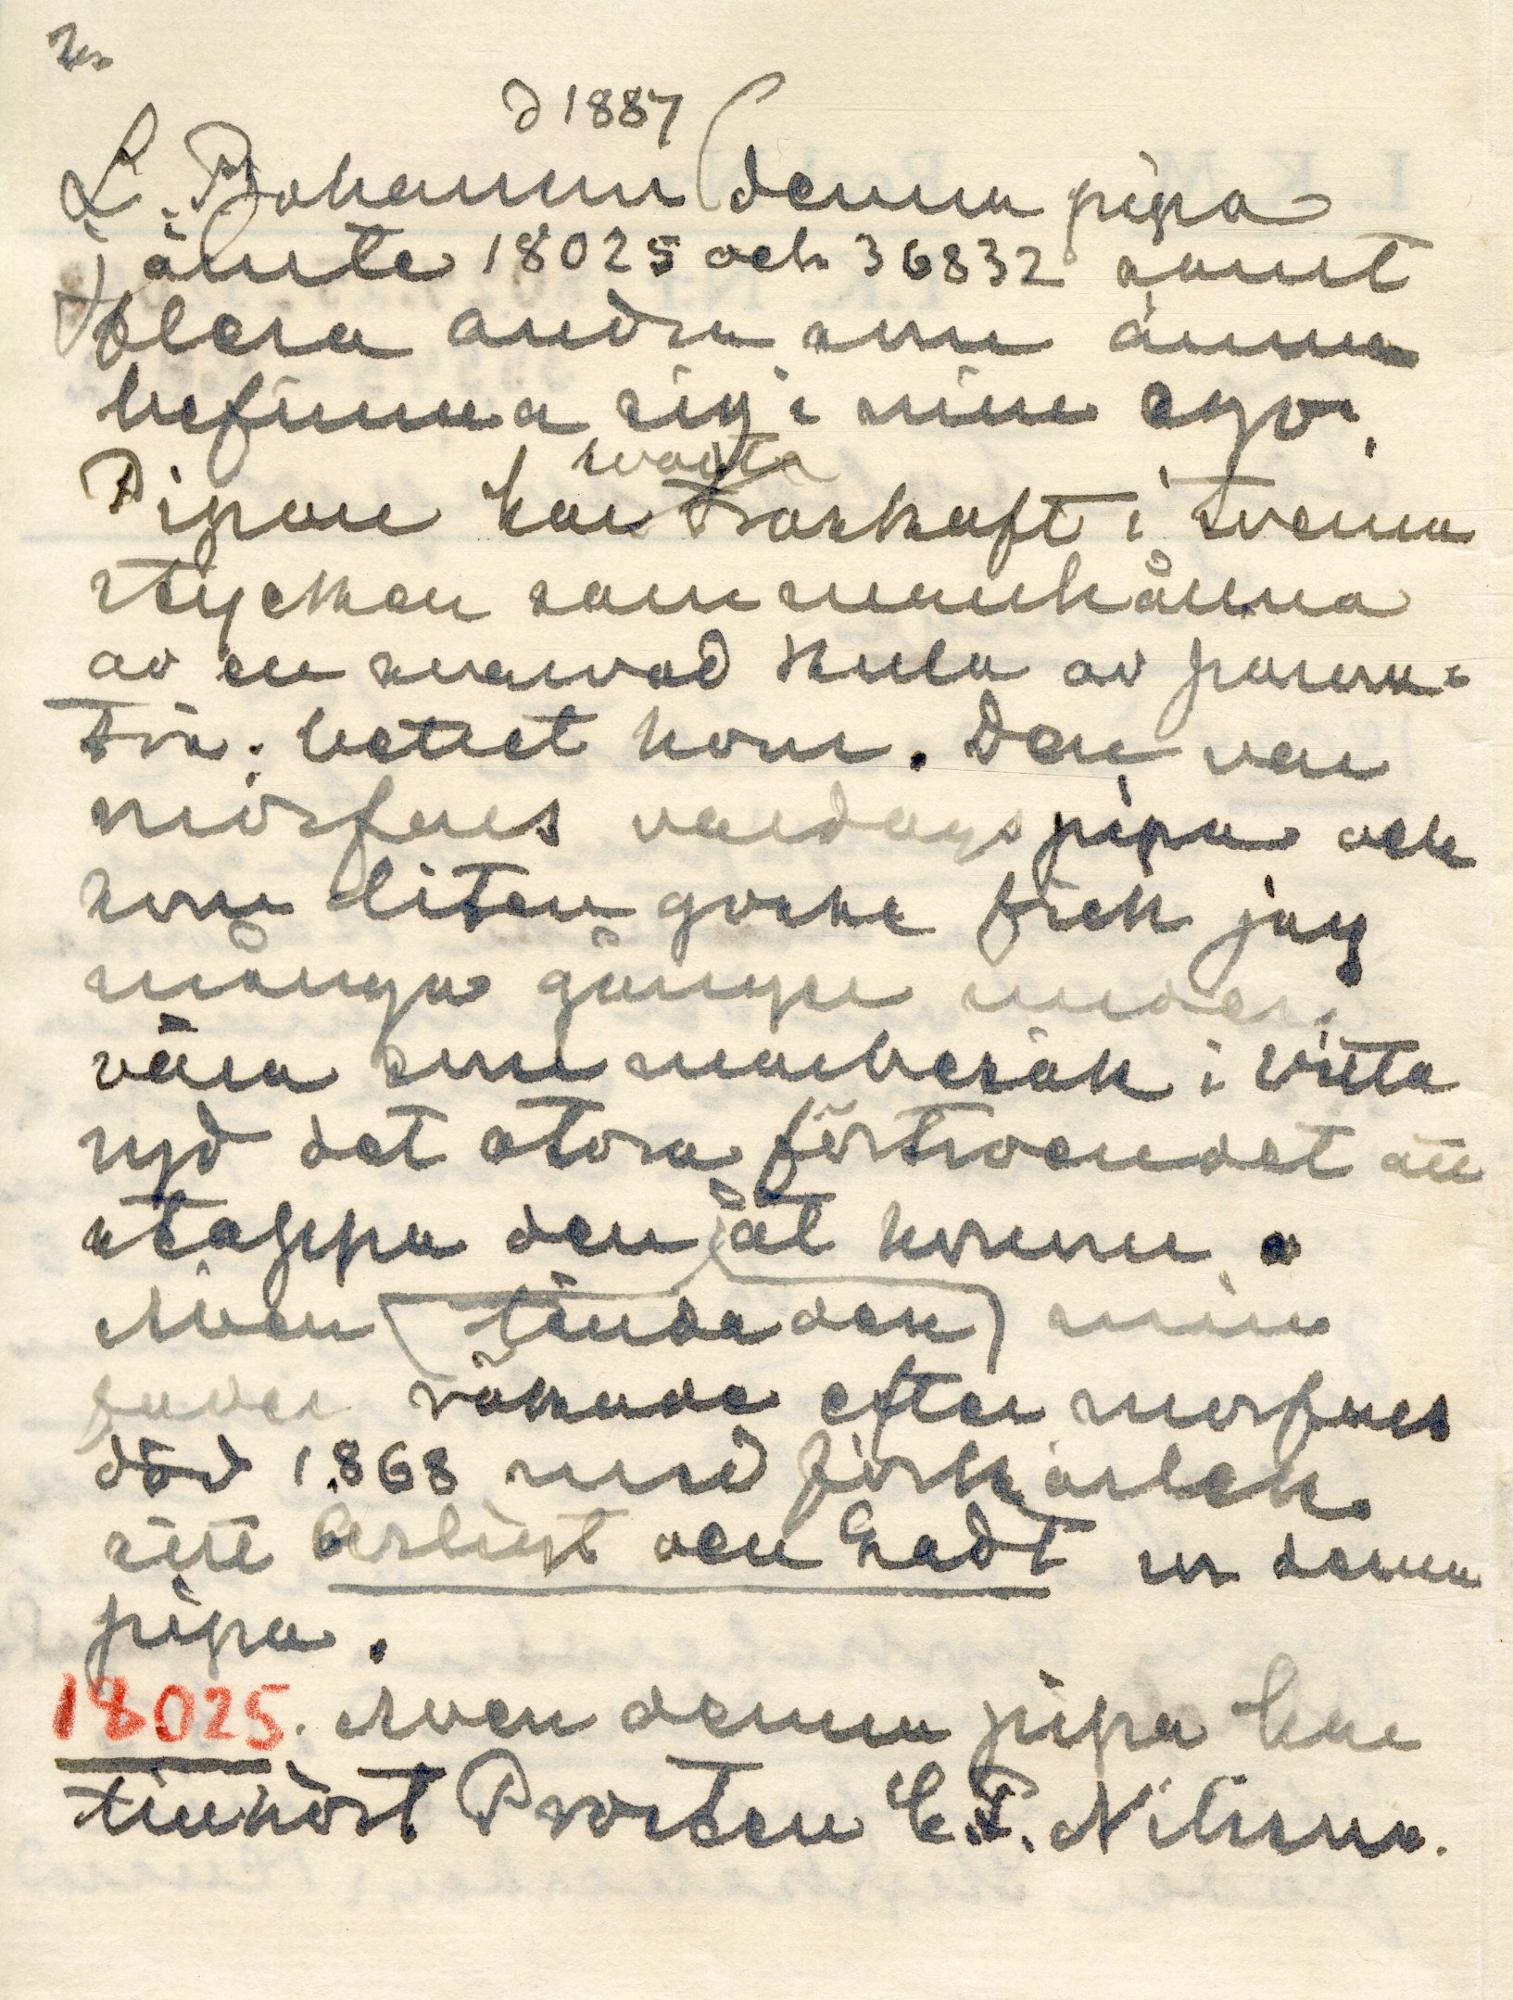 2.
d 1887
L. P. Johansson (denna pipa
jämte 18025 och 36832 samt
flera andra som ännu
befinna sig i min ego.
svarta
Pipan har Träskaft i tvenna
stycken sammanhållna
av en svarvad kula av
trä: betset horn. Den var
morfars vardagspipa och
som liten gosse fick jag
många gånger under
våra sommarbesök i Vista
ryd det stora förtroendet att
stoppa den åt honom.
Även tända den min
fader rökade efter morfars
död 1868 med förkärlek
sitt den Gadt ur denna
pipa.
18025. Även denna pipa har
tillhört Prosten C. F. Nilsson.